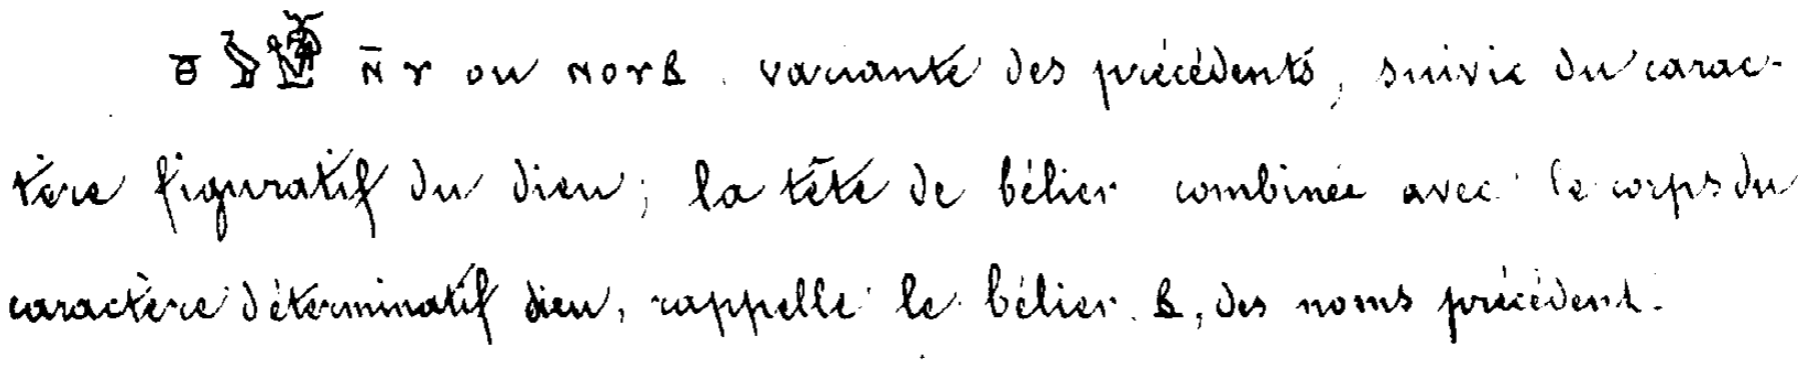 𓎸𓅱𓁠 N̄ⲩ ou ⲛⲟⲩⲃ. variante des précédents, suivie du carac-
tère figuratif du dieu; la tête de bélier combinée avec le corps du
caractère déterminatif dieu, rappelle le bélier. ⲃ, des noms précédent.